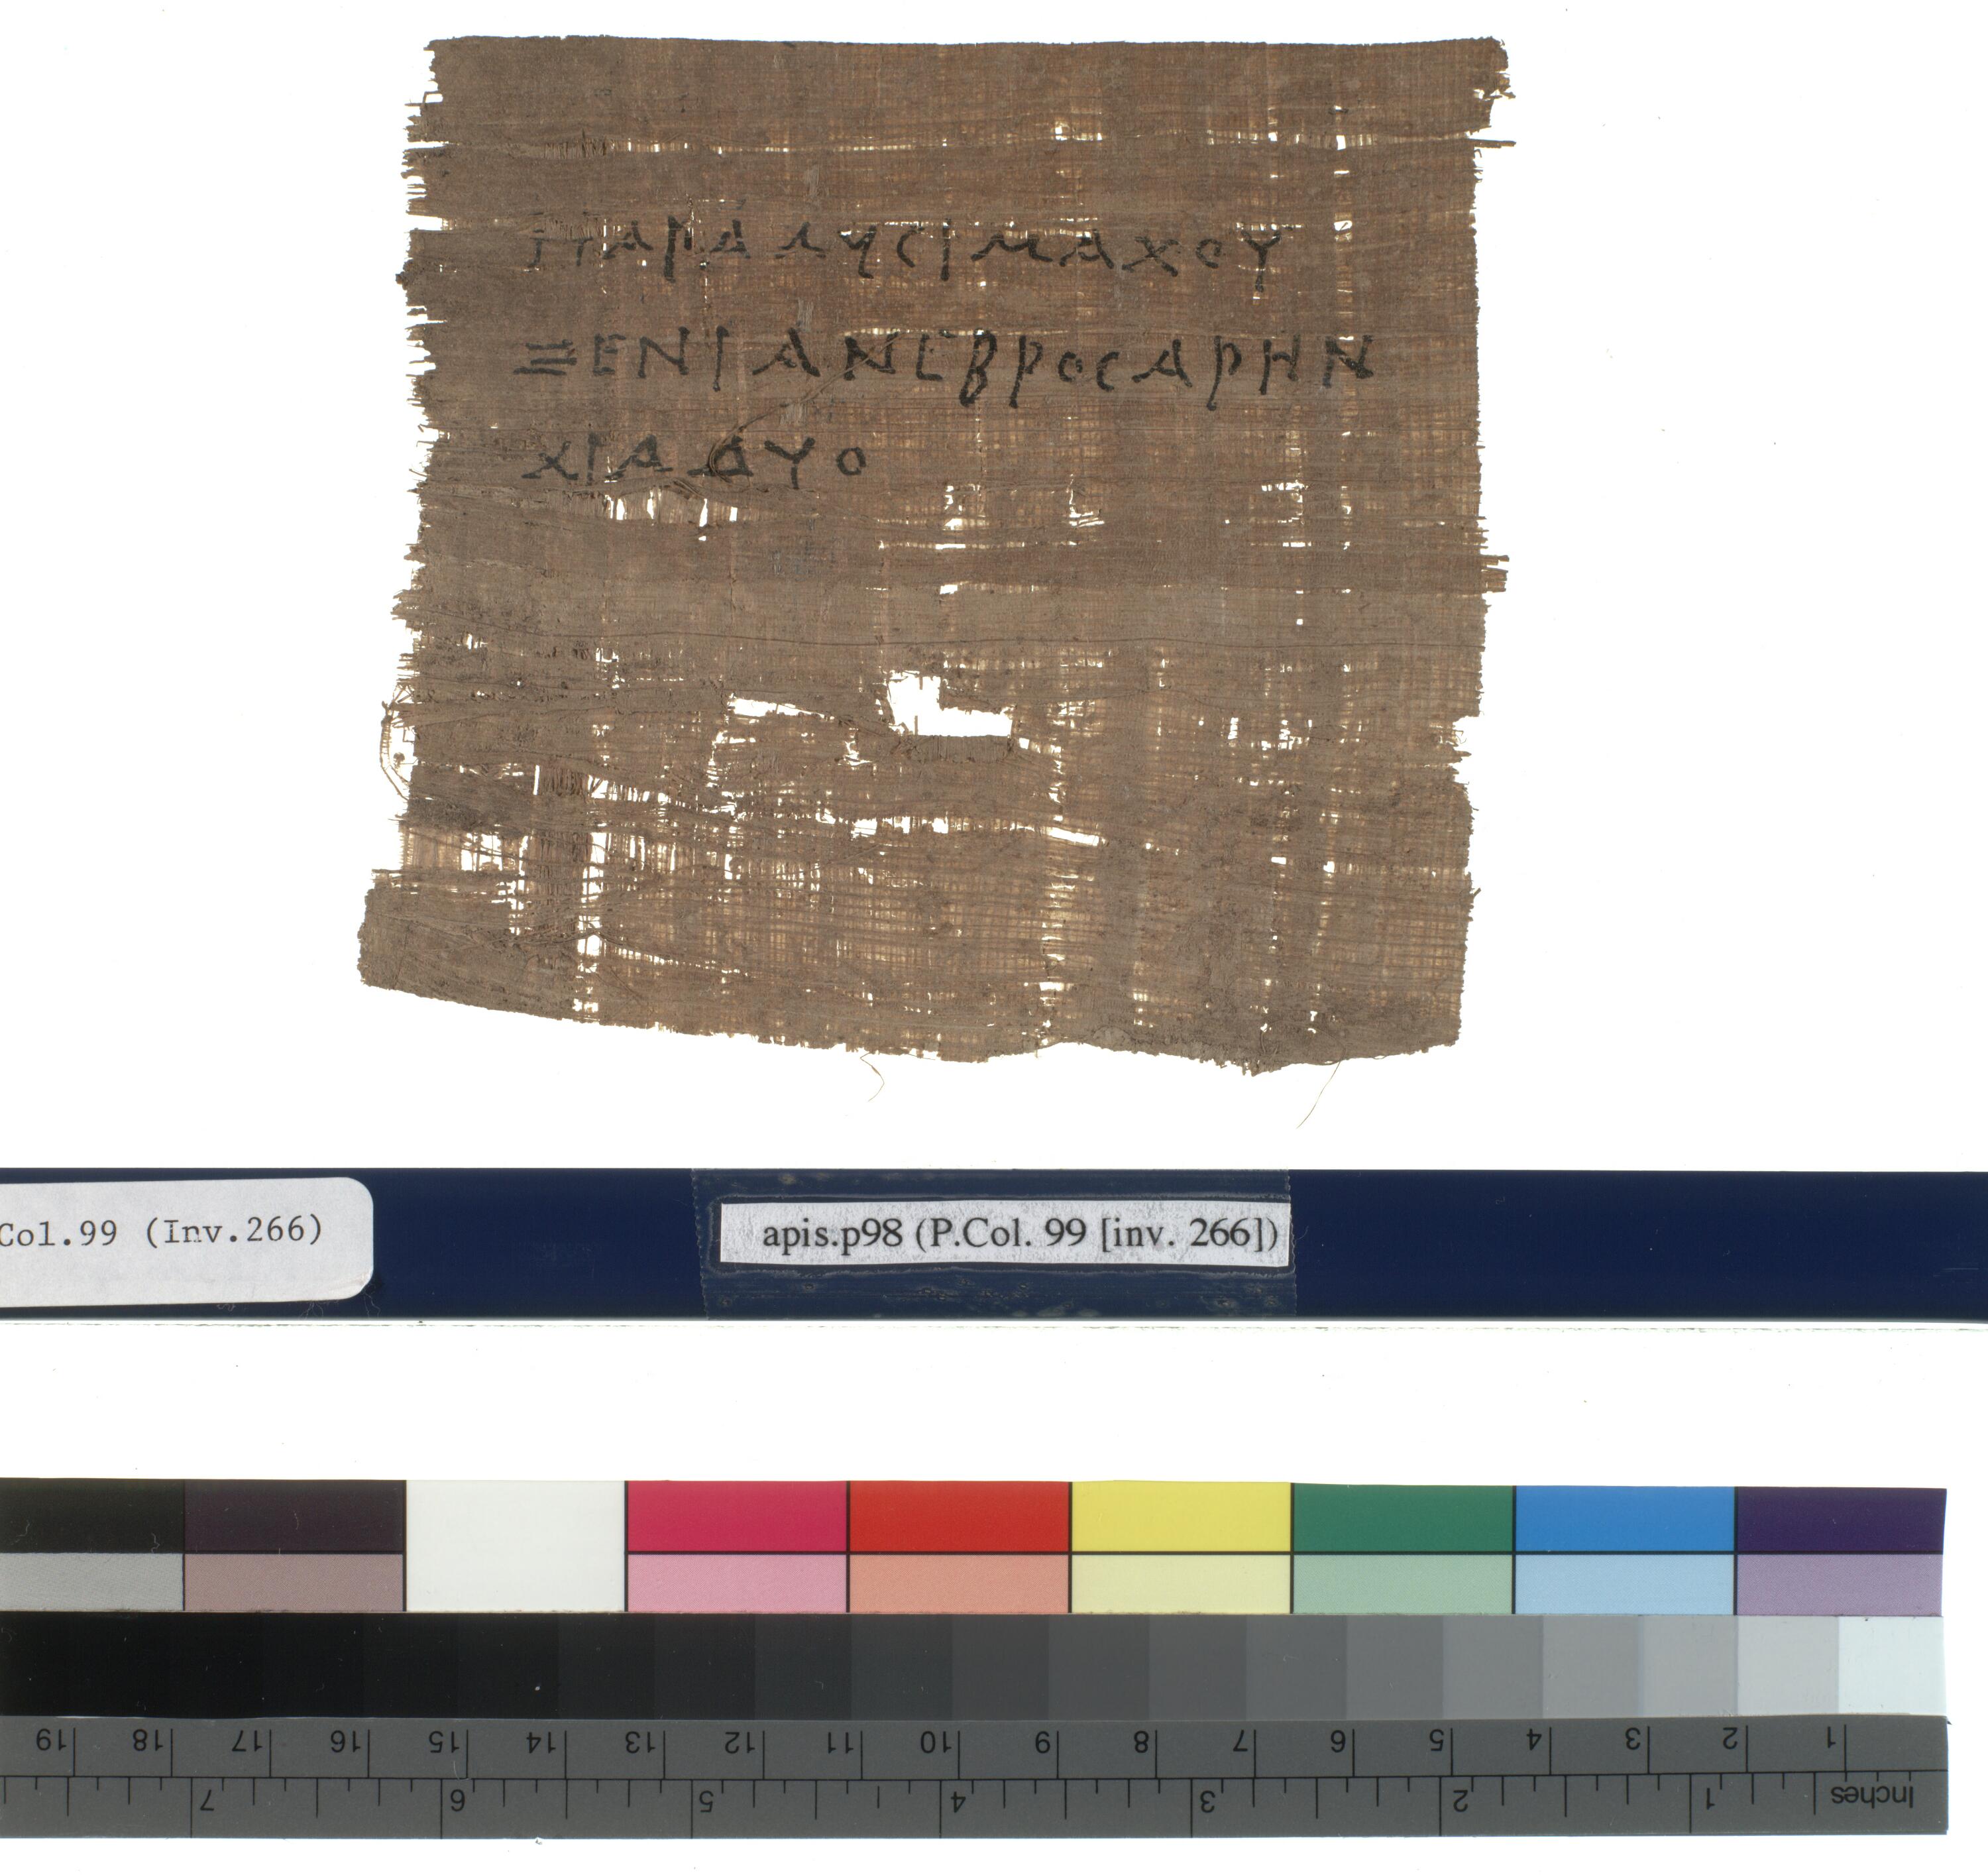 ΠΑΡΑΛΥСΙΜΑΧΟΥ
ΞΕΝΙΑΝΕΒΡΟСΑΡΗΝ
ΧΙΑΔΥΟ
Col.99 (Inv.266)
apis.p98 (P.Col. 99 [inv. 266])
19 18 17 16 15 14 13 12 11 10 9 8 7 6 5 4 3 2 1
7 6 5 4 3 2 1 Inches